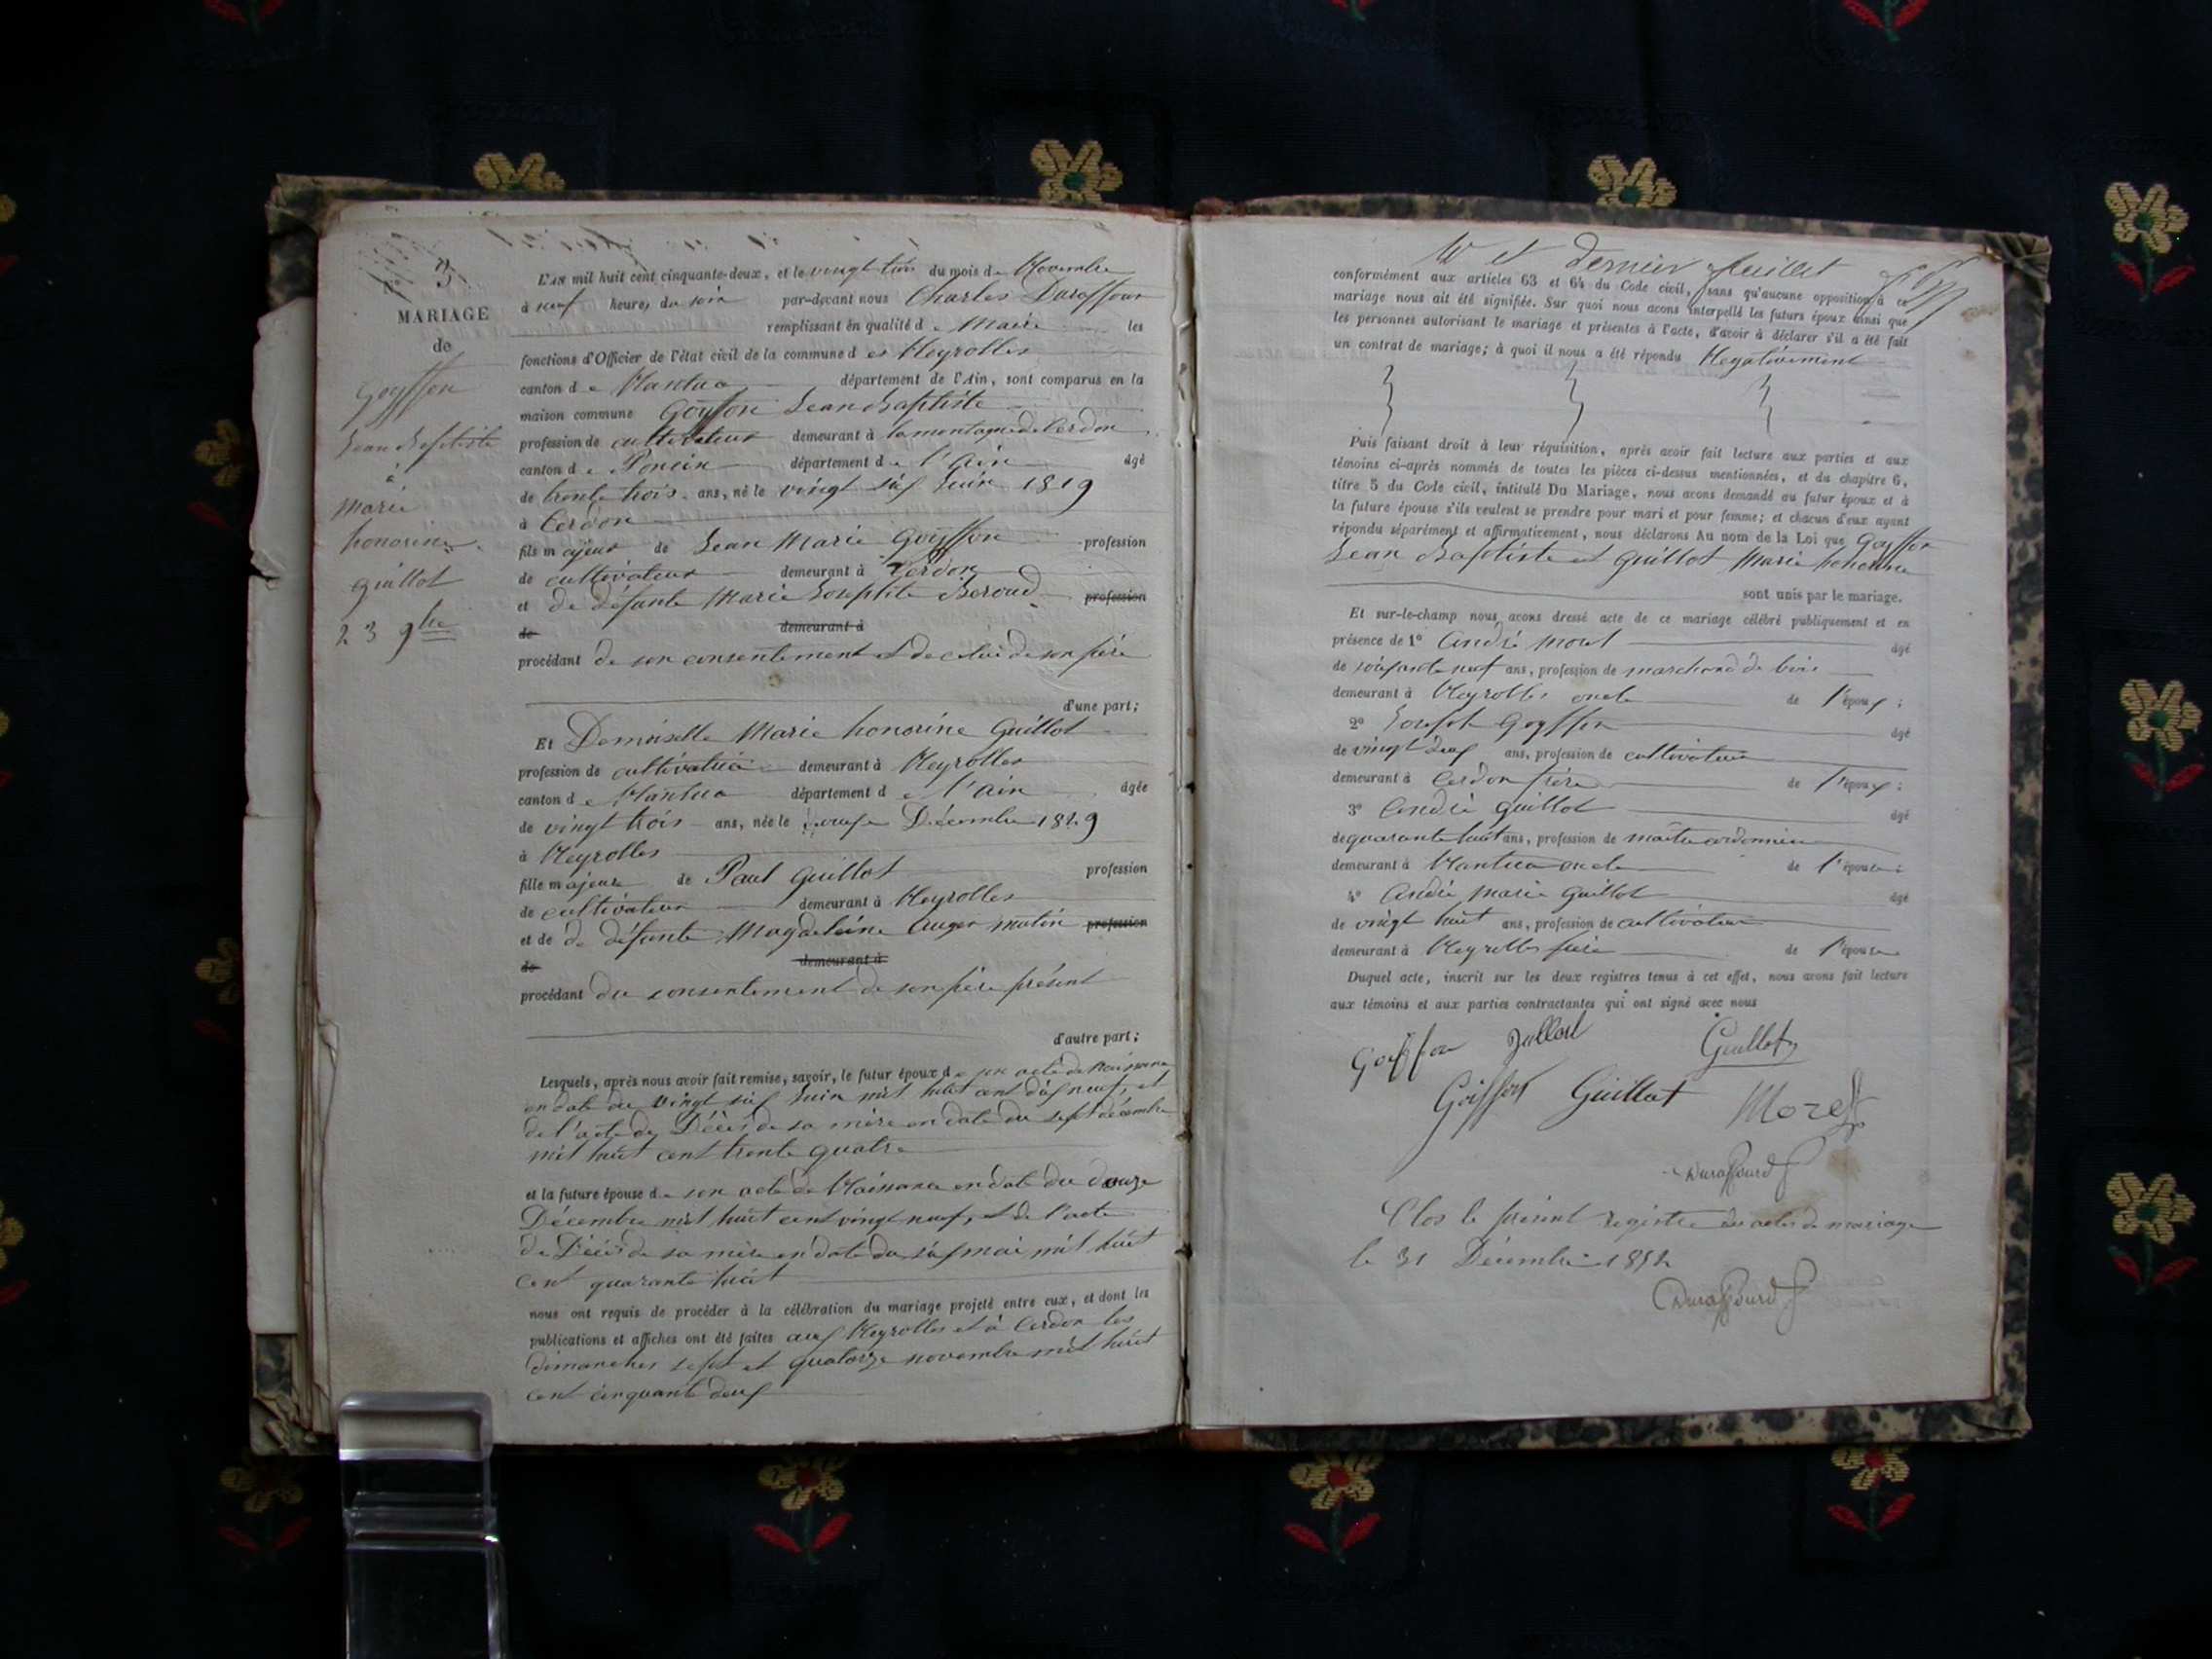 N° 3
MARIAGE
de
Goyffon
Jean Baptiste
à
Marie
honorine
guillot
23 9bre
L'AN mil huit cent cinquante-deux, et le vingt trois du mois de Novembre
à neuf heures du soir par-devant nous Charles Duraffour
remplissant en qualité de Maire les
fonctions d'Officier de l'état civil de la commune des Neyrolles
canton de Nantua département de l'Ain, sont comparus en la
maison commune Goyffon Jean Baptiste
profession de cultivateur demeurant à la montagne de Cerdon
canton de Poncin département de l'Ain âgé
de trente trois ans, né le vingt six Juin 1819
à Cerdon
fils majeur de Jean Marie Goyffon profession
de cultivateur demeurant à Cerdon
et de défunte Marie Josephte Beroud profession
de demeurant à
procédant de son consentement et de celui de son père
d'une part;
Et Demoiselle Marie honorine Guillot
profession de cultivatrice demeurant à Neyrolles
canton de Nantua département de l'Ain âgée
de vingt trois ans, née le douze Décembre 1829
à Neyrolles
fille majeure de Paul Guillot profession
de cultivateur demeurant à Neyrolles
et de de défunte Magdeleine Auger matin profession
de demeurant à
procédant du consentement de son père présent
d'autre part;
Lesquels, après nous avoir fait remise, savoir, le futur époux de son acte de Naissance
en date du vingt six Juin mil huit cent dix neuf, et
de l'acte de Décès de sa mère en date du sept décembre
mil huit cent trente quatre
et la future épouse de son acte de Naissance en date du douze
Décembre mil huit cent vingt neuf, et de l'acte
de Décès de sa mère en date du six mai mil huit
cent quarante huit
nous ont requis de procéder à la célébration du mariage projeté entre eux, et dont les
publications et affiches ont été faites aux Neyrolles et à Cerdon les
dimanches sept et quatorze novembre mil huit
cent cinquante deux
10 et dernier feuillet
conformément aux articles 63 et 64 du Code civil, sans qu'aucune opposition à ce
mariage nous ait été signifiée. Sur quoi nous avons interpellé les futurs époux ainsi que
les personnes autorisant le mariage et présentes à l'acte, d'avoir à déclarer s'il a été fait
un contrat de mariage; à quoi il nous a été répondu Négativement
Puis faisant droit à leur réquisition, après avoir fait lecture aux parties et aux
témoins ci-après nommés de toutes les pièces ci-dessus mentionnées, et du chapitre 6,
titre 5 du Code civil, intitulé Du Mariage, nous avons demandé au futur époux et à
la future épouse s'ils veulent se prendre pour mari et pour femme; et chacun d'eux ayant
répondu séparément et affirmativement, nous déclarons Au nom de la Loi que Goyffon
Jean Baptiste et Guillot Marie honorine
sont unis par le mariage.
Et sur-le-champ nous avons dressé acte de ce mariage célébré publiquement et en
présence de 1° André âgé
de soixante neuf ans, profession de marchand de bois
demeurant à Neyrolles oncle de l'époux;
2° Joseph Goyffon âgé
de vingt deux ans, profession de cultivateur
demeurant à Cerdon frère de l'époux;
3° André Guillot âgé
de quarante huit ans, profession de maître cordonnier
demeurant à Nantua oncle de l'épouse;
4° André Marie Guillot âgé
de vingt huit ans, profession de cultivateur
demeurant à Neyrolles frère de l'épouse
Duquel acte, inscrit sur les deux registres tenus à cet effet, nous avons fait lecture
aux témoins et aux parties contractantes qui ont signé avec nous
Goiffon Guillot
Goiffon Guillot
Duraffourd
Clos le présent registre des actes de mariage
le 31 Décembre 1852
Duraffourd